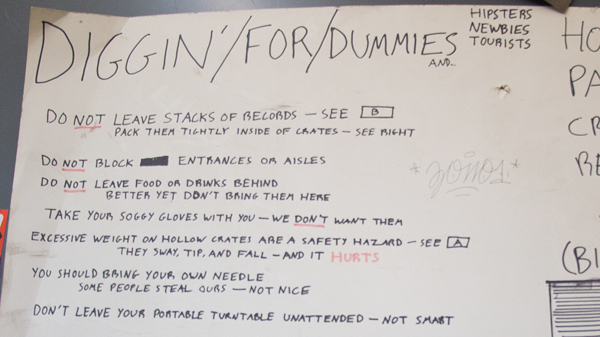 DIGGIN'/FOR/DUMMIES
AND...
HIPSTERS
NEWBIES
TOURISTS
DO NOT LEAVE STACKS OF RECORDS – SEE B
PACK THEM TIGHTLY INSIDE OF CRATES – SEE RIGHT
DO NOT BLOCK ENTRANCES OR AISLES
DO NOT LEAVE FOOD OR DRINKS BEHIND
BETTER YET DON'T BRING THEM HERE
TAKE YOUR SOGGY GLOVES WITH YOU – WE DON'T WANT THEM
EXCESSIVE WEIGHT ON HOLLOW CRATES ARE A SAFETY HAZARD – SEE A
THEY SWAY, TIP, AND FALL – AND IT HURTS
YOU SHOULD BRING YOUR OWN NEEDLE
SOME PEOPLE STEAL OURS – NOT NICE
DON'T LEAVE YOUR PORTABLE TURNTABLE UNATTENDED – NOT SMART
HO
PA
CR
RE
(BI